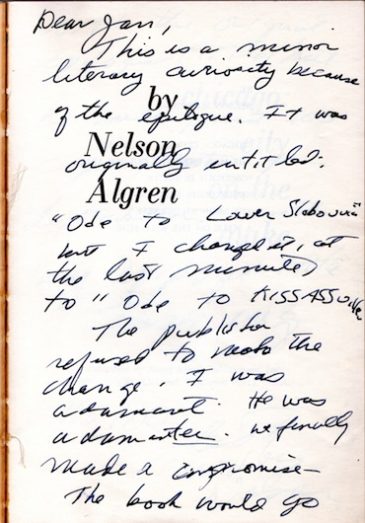 Dear Jan,
This is a minor
literary curiosity because
by
of the epilogue. It was
Nelson
originally entitled:
Algren
"Ode to Lower Slobovia"
but I changed it, at
the last minute,
to "Ode to KISSASS
The publisher
refused to make the
change. I was
adamant. He was
adamantee. We finally
made a compromise—
The book would go